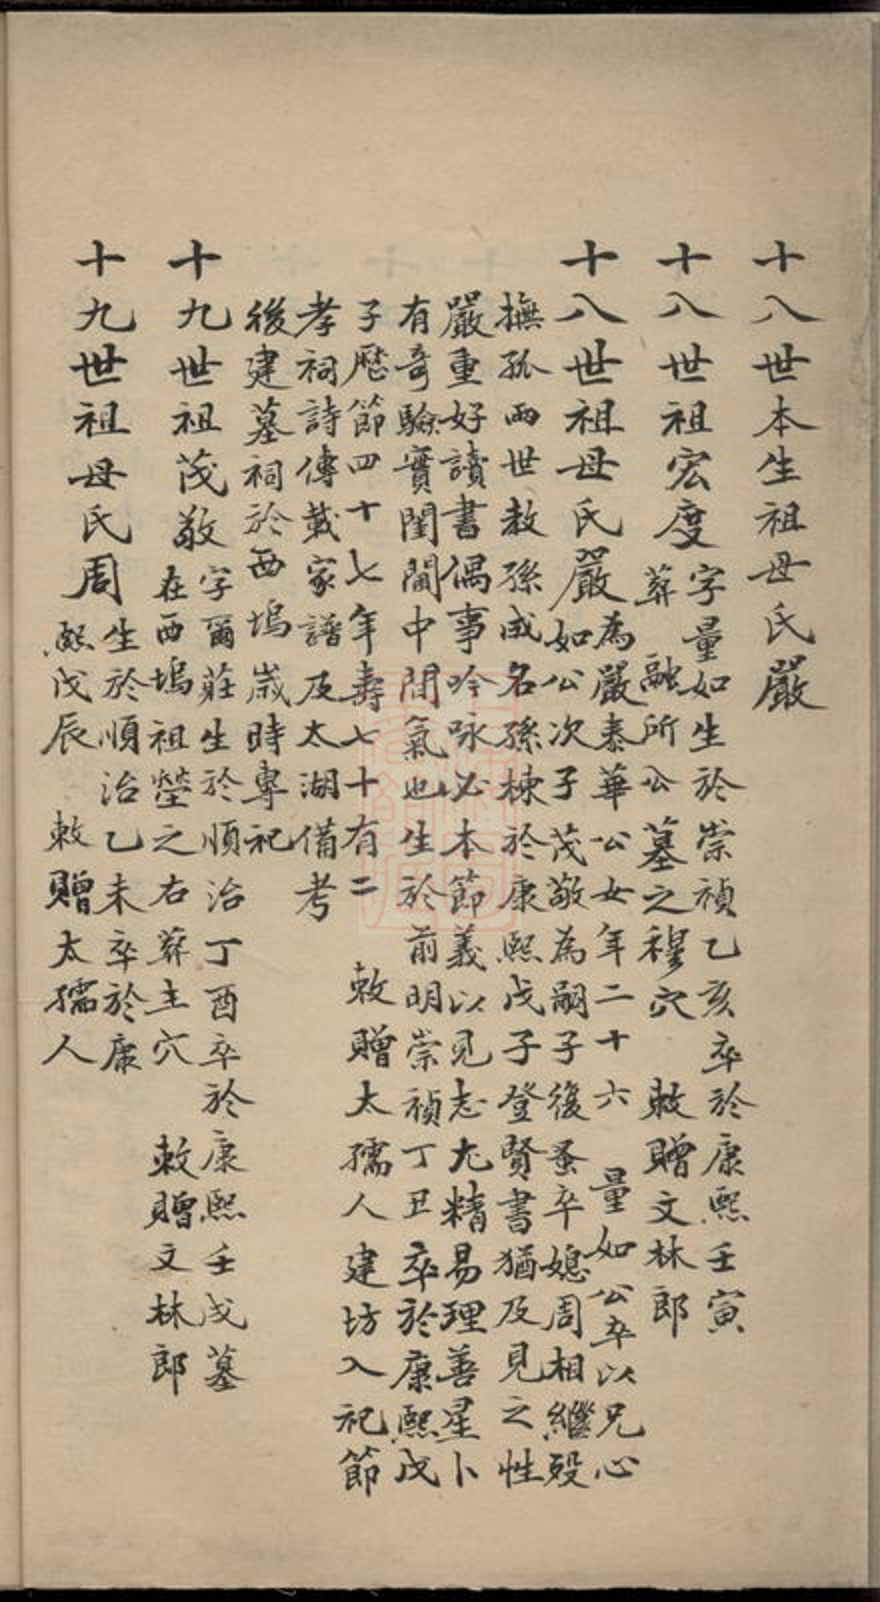 十八世本生祖母氏嚴
十八世祖宏度
字量如生於崇禎乙亥卒於康熙壬寅
葬 融所公墓之穆穴 敕贈文林郎
十八世祖母氏嚴
為嚴泰華公女年二十六 量如公卒以兄心
如公次子茂敬為嗣子後蚤卒媳周相繼歿
撫孤兩世教孫成名孫棟於康熙戊子登賢書猶及見之性
嚴重好讀書偶事吟咏必本節義以見志尤精易理善星卜
有奇驗實閨閫中間氣也生於前明崇禎丁丑卒於康熙戊
子歷節四十七年壽七十有二 敕贈太孺人建坊入祀節
孝祠詩傳載家譜及太湖備考
後建墓祠於西塢歲時專祀
十九世祖茂敬
字爾莊生於順治丁酉卒於康熙壬戌墓
在西塢祖塋之右葬主穴 敕贈文林郎
十九世祖母氏周
生於順治乙未卒於康
熙戊辰 敕贈太孺人